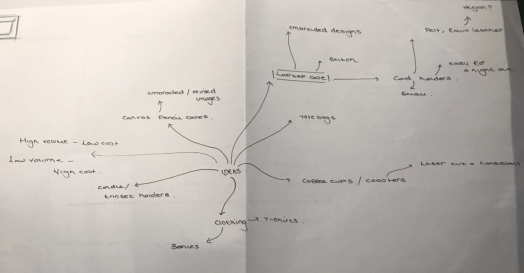 vegan?
Felt, Faux leather
embroided designs
Stitch
Laptop case
Card holders
easy
a night out
Small
embroided / Printed
images
Canvas Pencil cases
tote bags
High volume - Low cost
Low volume -
High cost
IDEAS
candle /
trinket holders
Coffee cups / coasters
Laser cut
Clothing → T-shirts